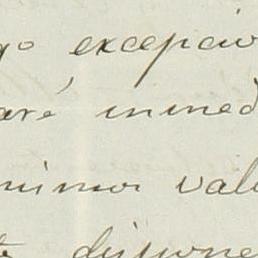 go excepcio
aré inmed
nimor valo
dispone